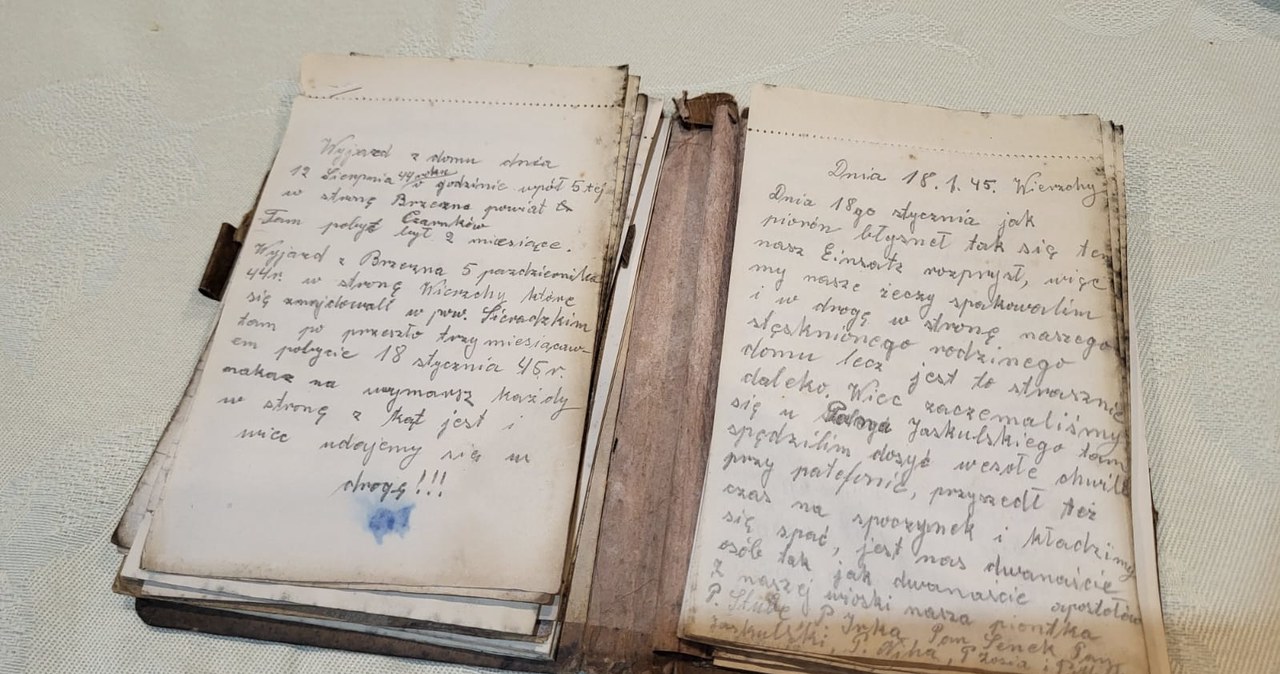 Wyjazd z domu dnia
12 Sierpnia 44 roku o godzinie wpół 5 tej
w stronę Brzezna powiat
Czarnków
Tam pobyt był 2 miesiące.
Wyjazd z Brzezna 5 pazdziernika
44r. w stronę Wierzchy które
się znajdowali w pow. Sieradzkim
tam po przeszło trzy miesiącow-
em pobycie 18 stycznia 45 r.
nakaz na wymarsz każdy
w stronę z kąt jest i
więc udajemy się w
drogę!!!
Dnia 18.1.45. Wierzchy
Dnia 18go stycznia jak
piorón błysnęł tak się też
nasz Einsatz rozprysł, więc
my nasze żeczy spakowalim
i w drogę w stronę naszego
stęsknionego rodzinego
domu lecz jest to strasznie
daleko. Wiec zaczemaliśmy
się u Jaskulskiego tam
spędzilim dosyć wesołe chwile
przy patefonie, przyszedł też
czas na spoczynek i kładzimy
się spać, jest nas dwanaście
osób tak jak dwanaście apostołów
z naszej wioski nasza piontka
P. Inka, Pan Senek Pan
Jaskulski, P. P. Zosia i